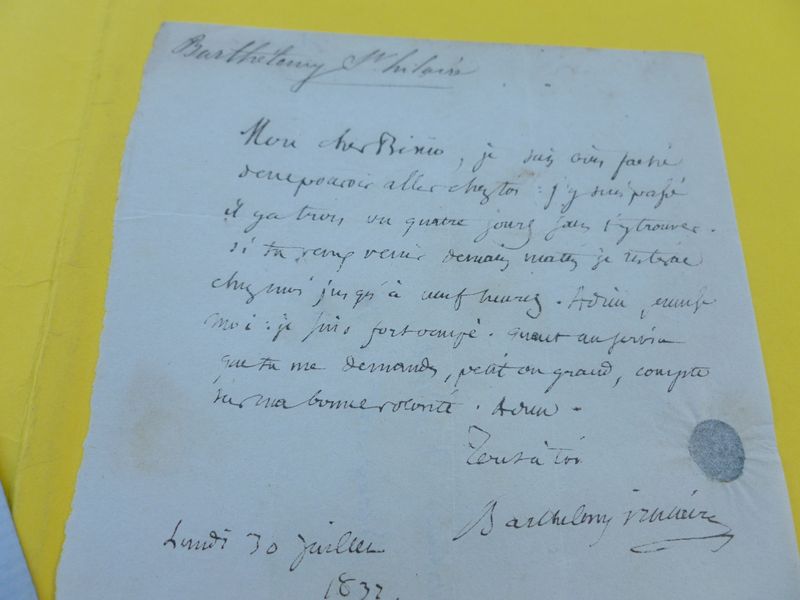 Barthélemy St hilaire
Mon cher Bixio, je suis bien faché
de ne pouvoir aller chez toi : j'y suis passé
il y a trois ou quatre jours sans t'y trouver.
si tu veux venir demain matin je resterai
chez moi jusqu'à neuf heures. Adieu, excuse
moi : je suis fort occupé. quant au service
que tu me demandes, petit ou grand, compte
sur ma bonne volonté. Adieu.
Tout à toi
Barthélemy St hilaire
Lundi 30 juillet
1832.